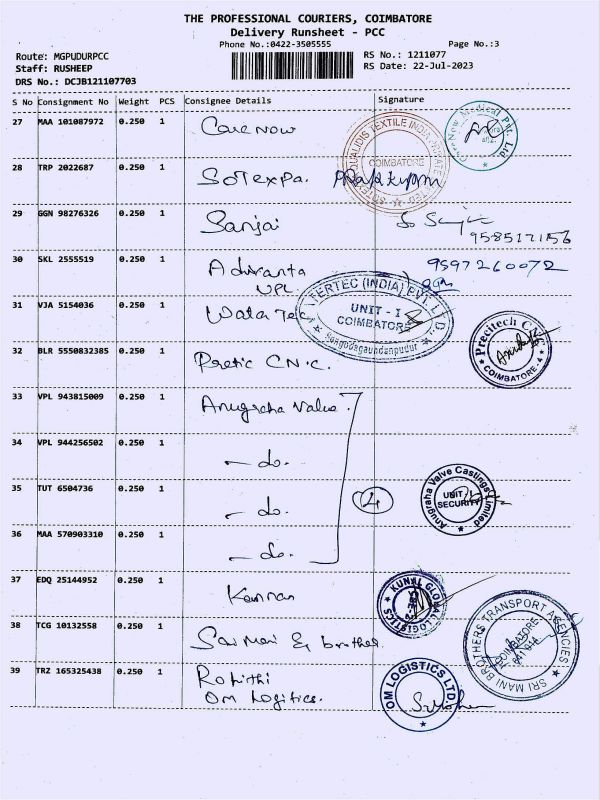 THE PROFESSIONAL COURIERS, COIMBATORE
Delivery Runsheet - PCC
Phone No.:0422-3505555
Page No.:3
Route: MGPUDURPCC
Staff: RUSHEEP
DRS No.: DCJB121107703
RS No.: 1211077
RS Date: 22-Jul-2023
S No Consignment No Weight PCS Consignee Details Signature
27 MAA 101087972 0.250 1 Care now
28 TRP 2022687 0.250 1 SOTexpa.
COIMBATORE
29 GGN 98276326 0.250 1 Sanjai
9585171156
30 SKL 2555519 0.250 1
UPL
9597260072
31 VJA 5154036 0.250 1 Wata Tec
TERTEC (INDIA) PVT. LTD.
UNIT - I
COIMBATORE
32 BLR 5550832385 0.250 1 Pretic CN.C.
Precitech CNC
COIMBATORE
33 VPL 943815009 0.250 1 Anugraha Value
34 VPL 944256502 0.250 1 - do.
35 TUT 6504736 0.250 1 - do.
4
Anugraha Valve Castings Limited
UNIT - I
SECURITY
36 MAA 570903310 0.250 1 - do.
37 EDQ 25144952 0.250 1 Kannan
KUNAL GLOBAL LOGISTICS
38 TCG 10132558 0.250 1 Sri Mani & brothers
SRI MANI BROTHERS TRANSPORT AGENCIES
COIMBATORE
39 TRZ 165325438 0.250 1 Rohithi
OM Logitics.
OM LOGISTICS LTD.